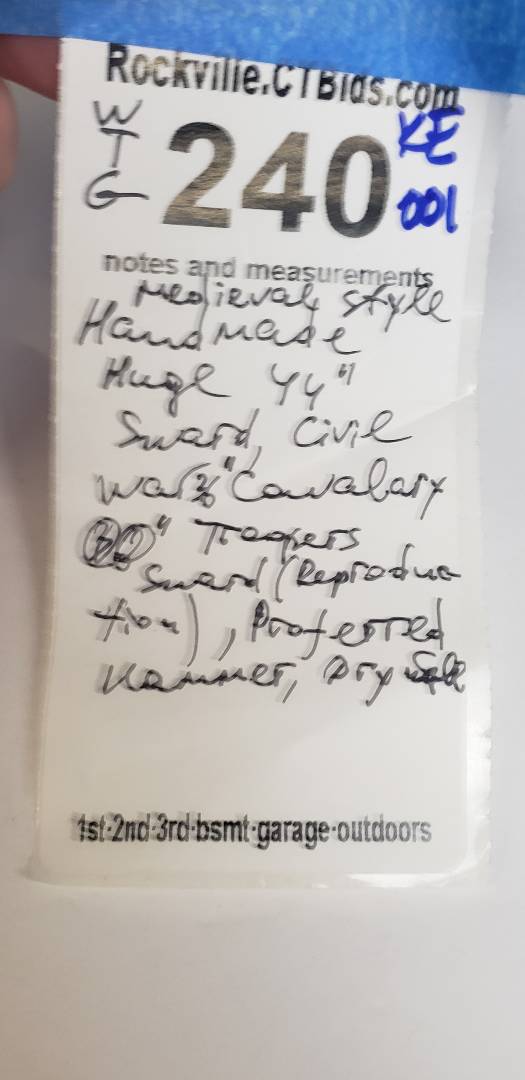 Rockville.CTBids.com
W
T
G
240
KE
001
notes and measurements
Medieval style
Handmade
Huge 44"
Sward, Civil
War Cavalary
Troopers
Sward (Reproduc
tion), Proferred
Hammer, Dry
1st·2nd·3rd·bsmt·garage·outdoors